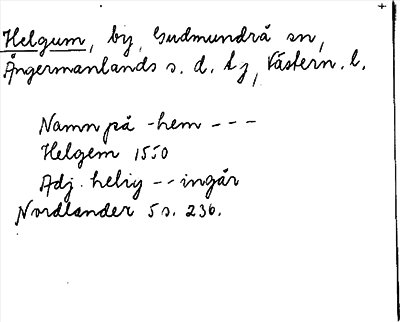 Helgum, by, Gudmundrå sn,
Ångermanlands s. d. tg, Västern. l.
Namn på -hem - - -
Helgem 1550
Adj. helig -- ingår
Nordlander 5 s. 236.